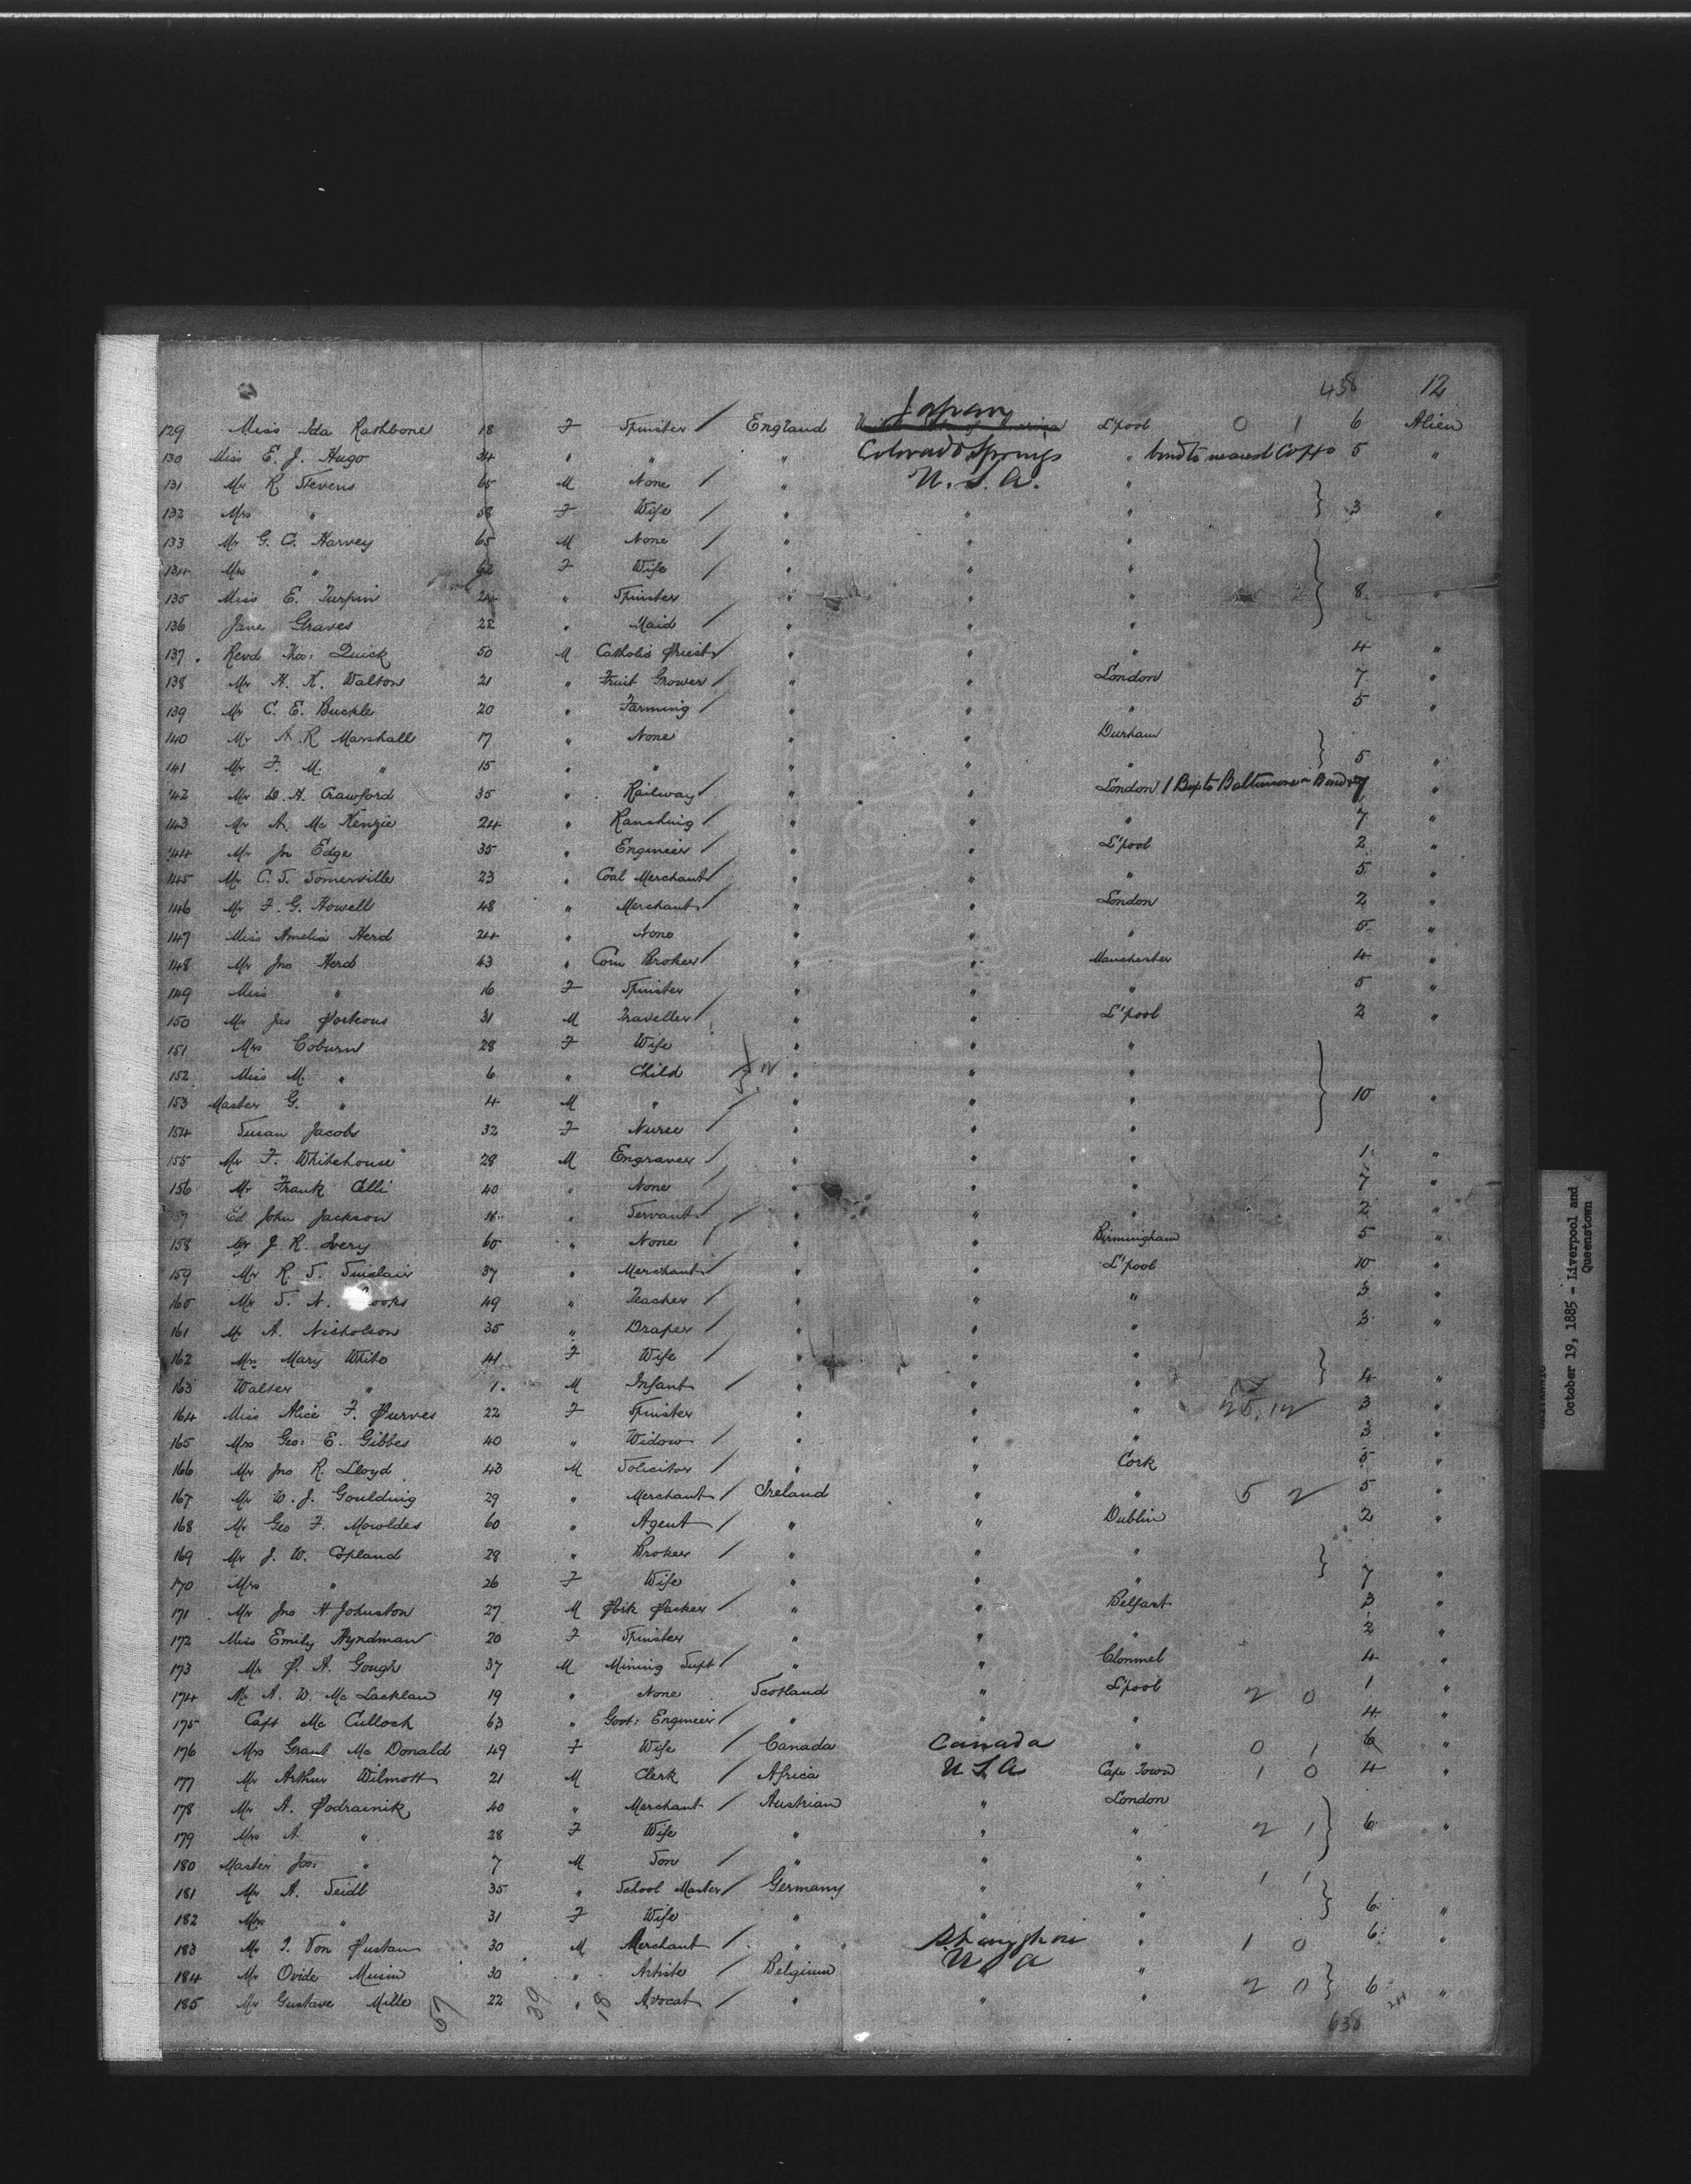 438 12
Japan
129 Miss Ida Rathbone 18 F Spinster / England L'pool 0 1 6 Alien
130 Miss E. J. Hugo 34 " " " Colorado Springs " bond to nearest 5 "
131 Mr R Stevens 65 M None / " U.S.A. "
132 Mrs " 58 F Wife / " " " } 3 "
133 Mr G. C. Harvey 65 M None / " " "
134 Mrs " 62 F Wife / " " "
135 Miss E. Turpin 24 " Spinster " " " } 8 "
136 Jane Graves 22 " Maid / " " "
137 Revd Thos: Quick 50 M Catholic Priest / " " " 4 "
138 Mr H. K. Walton 21 " Fruit Grower / " " London 7 "
139 Mr C. E. Buckle 20 " Farming / " " " 5 "
140 Mr A. R Marshall 17 " None " " Durham
141 Mr F. M. " 15 " " " " " } 5 "
142 Mr D. H. Crawford 35 " Railway / " " London 1 Box to Baltimore in Bond 7 "
143 Mr A. Mc Kenzie 24 " Ranching / " " " 7 "
144 Mr Jn Edge 35 " Engineer / " " L'pool 2 "
145 Mr C. S. Somerville 23 " Coal Merchant / " " " 5 "
146 Mr F. G. Howell 48 " Merchant / " " London 2 "
147 Miss Amelia Herd 24 " None " " " 5 "
148 Mr Jno Herd 43 " Corn Broker / " " Manchester 4 "
149 Miss " 16 F Spinster " " " 5 "
150 Mr Jas Porteous 31 M Traveller / " " L'pool 2 "
151 Mrs Coburn 28 F Wife " " "
152 Miss M. " 6 " Child " " "
153 Master G. " 4 M " / " " " } 10 "
154 Susan Jacobs 32 F Nurse / " " "
155 Mr F. Whitehouse 28 M Engraver / " " " 1 "
156 Mr Frank Celli 40 " None / " " " 7 "
157 Ed. John Jackson 16 " Servant / " " " 2 "
158 Mr J. R. Ivery 60 " None / " " Birmingham 5 "
159 Mr R. S. Sinclair 37 " Merchant / " " L'pool 10 "
160 Mr S. N. 49 " Teacher / " " " 3 "
161 Mr A. Nicholson 35 " Draper / " " " 3 "
162 Mrs Mary White 41 F Wife / " " "
163 Walter " 1 M Infant / " " " } 4 "
164 Miss Alice F. Purves 22 F Spinster " " " 25 12 3 "
165 Mrs Geo: E. Gibbes 40 " Widow / " " " 3 "
166 Mr Jno R. Lloyd 43 M Solicitor / " " Cork 5 "
167 Mr W. J. Goulding 29 " Merchant / Ireland " " 5 2 5 "
168 Mr Geo F. Mowldes 60 " Agent / " " Dublin 2 "
169 Mr J. W. Copland 28 " Broker / " " "
170 Mrs " 26 F Wife " " " } 7 "
171 Mr Jno H Johnston 27 M Pork Packer / " " Belfast 3 "
172 Miss Emily Hyndman 20 F Spinster " " " 2 "
173 Mr P. A. Gough 37 M Mining Supt / " " Clonmel 4 "
174 Mr A. W. Mc Lachlan 19 " None Scotland " L'pool 2 0 1 "
175 Capt Mc Culloch 63 " Govt: Engineer / " " " 4 "
176 Mrs Grant Mc Donald 49 F Wife / Canada Canada " 0 1 6 "
177 Mr Arthur Wilmott 21 M Clerk / Africa U S A Cape Town 1 0 4 "
178 Mr A. Podrainik 40 " Merchant / Austrian " London
179 Mrs A. " 28 F Wife " " " 2 1 } 6 "
180 Master Jos: " 7 M Son / " " "
181 Mr A. Seidl 35 " School Master / Germany " " 1 1
182 Mrs " 31 F Wife " " " } 6 "
183 Mr I. Von Pustau 30 M Merchant / " Shanghai " 1 0 6 "
184 Mr Ovide Musin 30 " Artiste / Belgium U S A "
185 Mr Gustave Mille 22 " Avocat / " " " 2 0 } 6 "
57 39 18 638
October 19, 1885 - Liverpool and
Queenstown